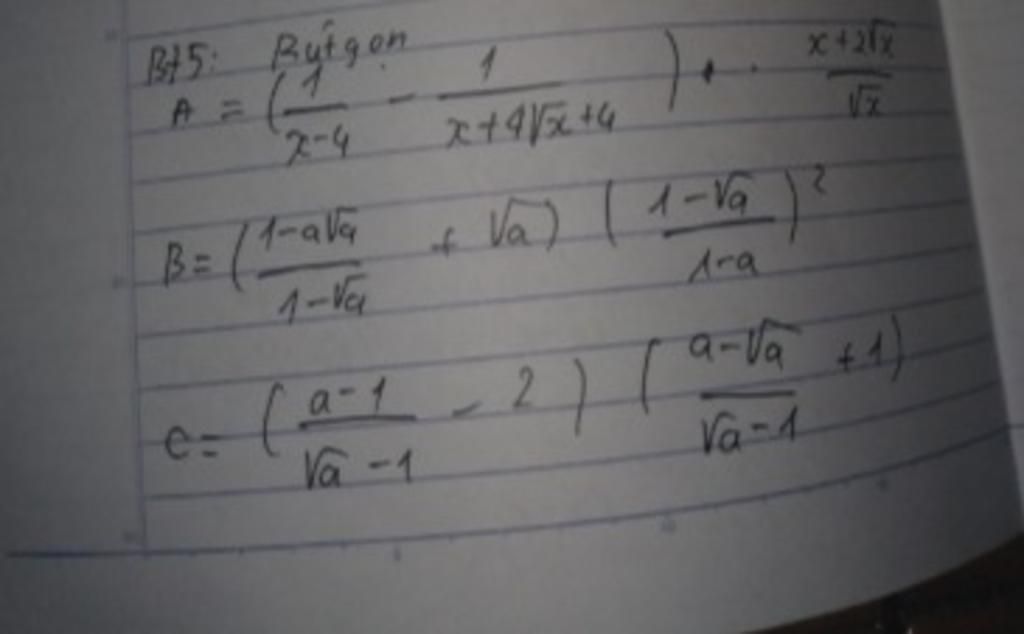 Bt5: Rút gọn
A = (1/(x-4) - 1/(x+4√x+4)) · (x+2√x)/√x
B = ((1-a√a)/(1-√a) + √a) ((1-√a)/(1-a))²
C = ((a-1)/(√a-1) - 2) ((a-√a)/(√a-1) + 1)